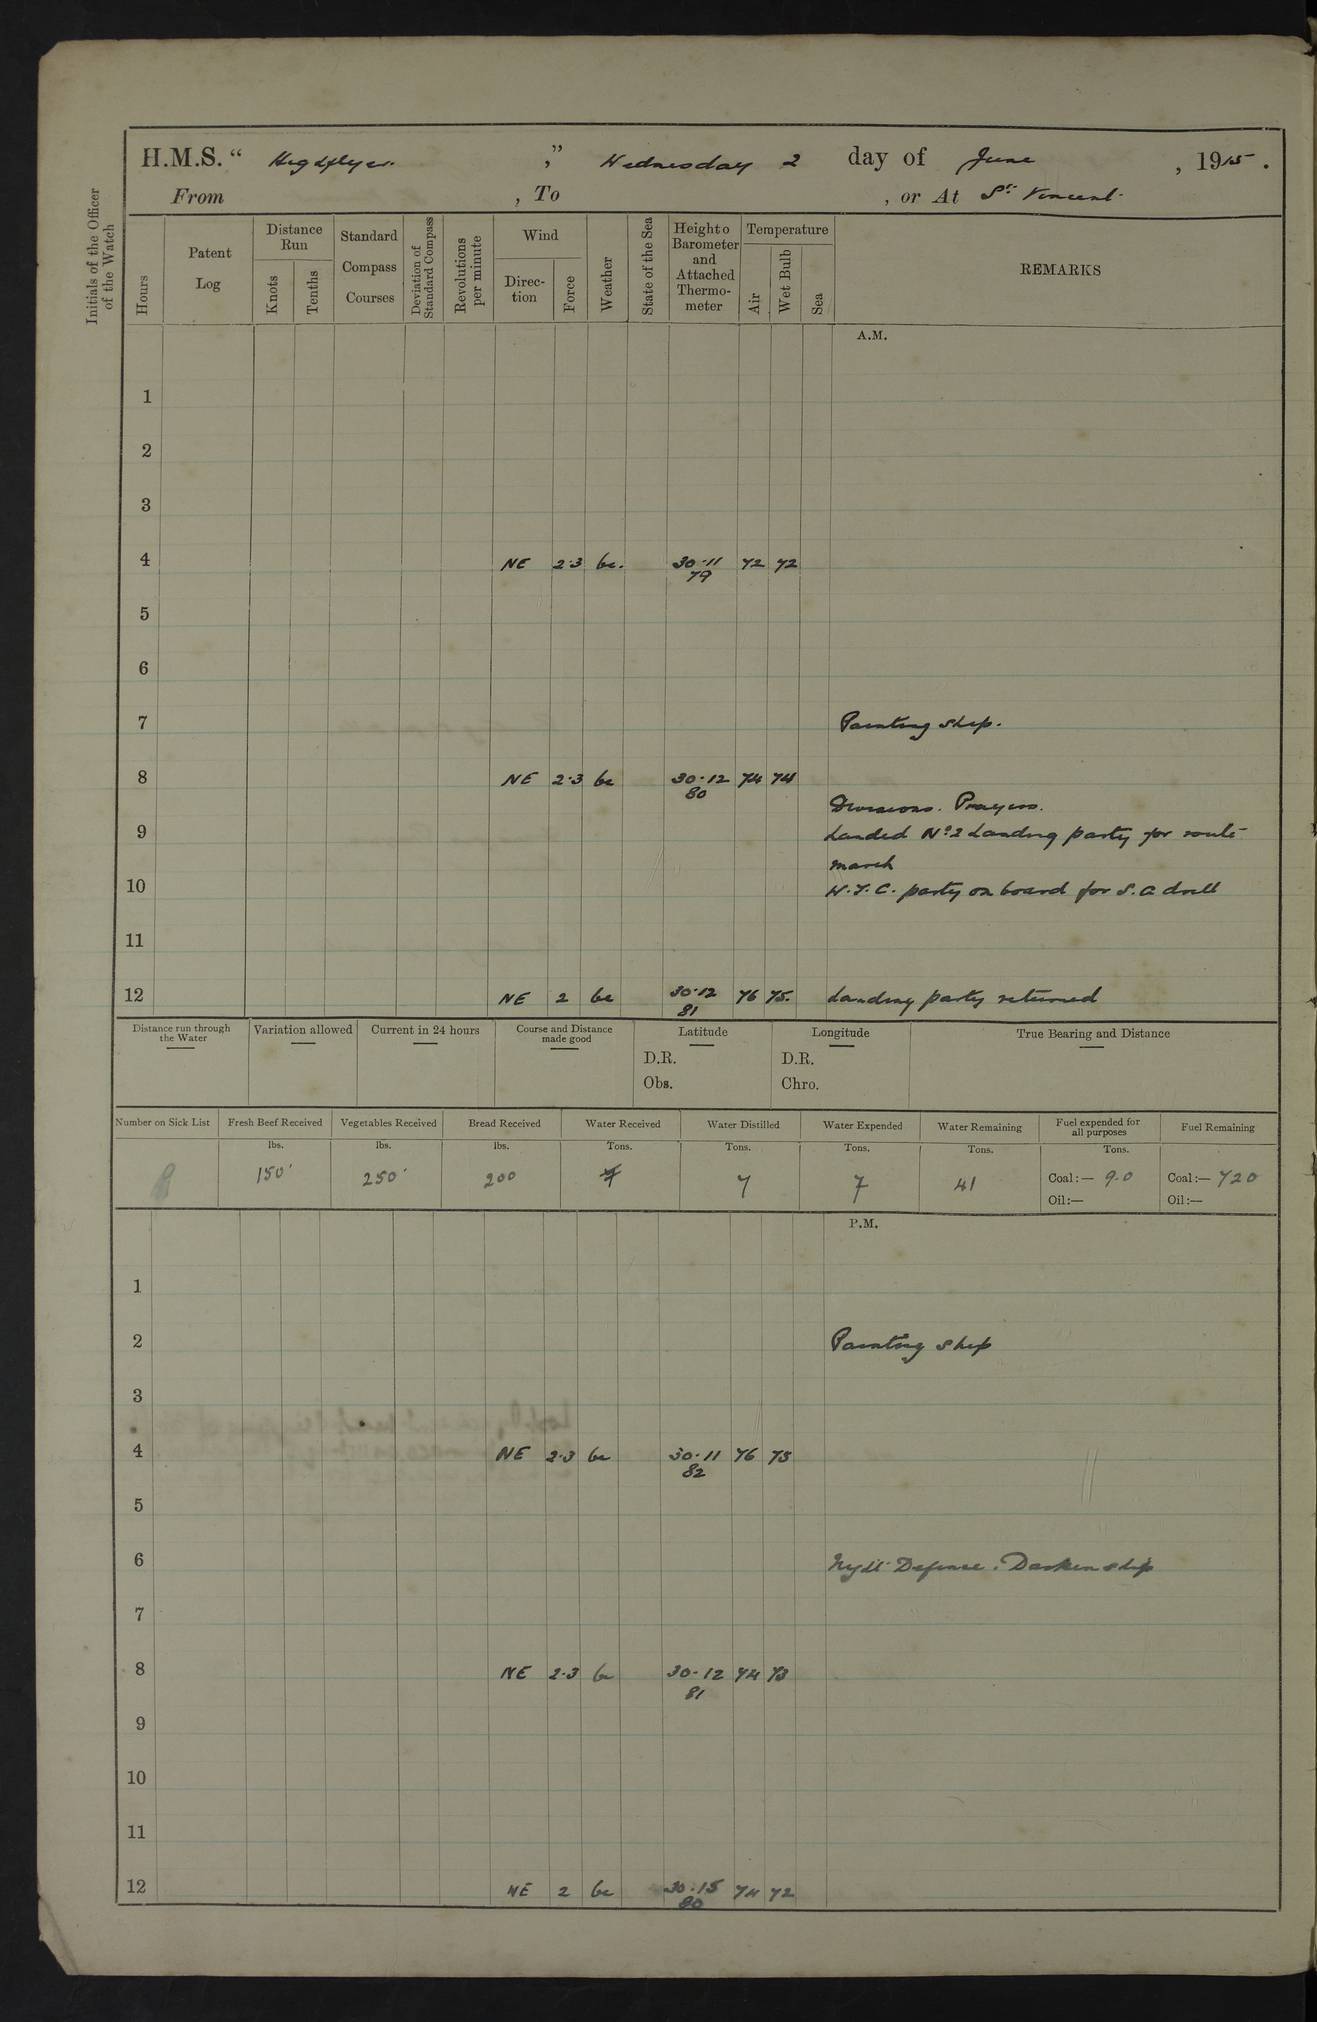 H.M.S. “ Highflyer. ,” Wednesday 2 day of June , 1915 .
From , To , or At St. Vincent.
Initials of the Officer of the Watch
Hours
Patent Log
Distance Run
Knots
Tenths
Standard Compass Courses
Deviation of Standard Compass
Revolutions per minute
Wind
Direc-tion
Force
Weather
State of the Sea
Height o Barometer and Attached Thermo-meter
Temperature
Air
Wet Bulb
Sea
REMARKS
A.M.
1
2
3
4 NE 2·3 bc. 30·11 72 72
79
5
6
7 Painting ship.
8 NE 2·3 bc 30·12 74 74
80
Divisions. Prayers.
9 Landed No 2 Landing party for route
march
10 W.T.C. party on board for S.A drill
11
12 NE 2 bc 30·12 76 75. Landing party returned
81
Distance run through the Water
Variation allowed
Current in 24 hours
Course and Distance made good
Latitude
D.R.
Obs.
Longitude
D.R.
Chro.
True Bearing and Distance
Number on Sick List Fresh Beef Received Vegetables Received Bread Received Water Received Water Distilled Water Expended Water Remaining Fuel expended for all purposes Fuel Remaining
lbs. lbs. lbs. Tons. Tons. Tons. Tons. Tons.
8 150 250 200 7 7 41 Coal:— 9.0 Coal:— 720
Oil:— Oil:—
P.M.
1
2 Painting ship
3
4 NE 2·3 bc 30·11 76 75
82
5
6 Night Defence. Darken ship
7
8 NE 2·3 bc 30·12 74 73
81
9
10
11
12 NE 2 bc 30·15 74 72
80